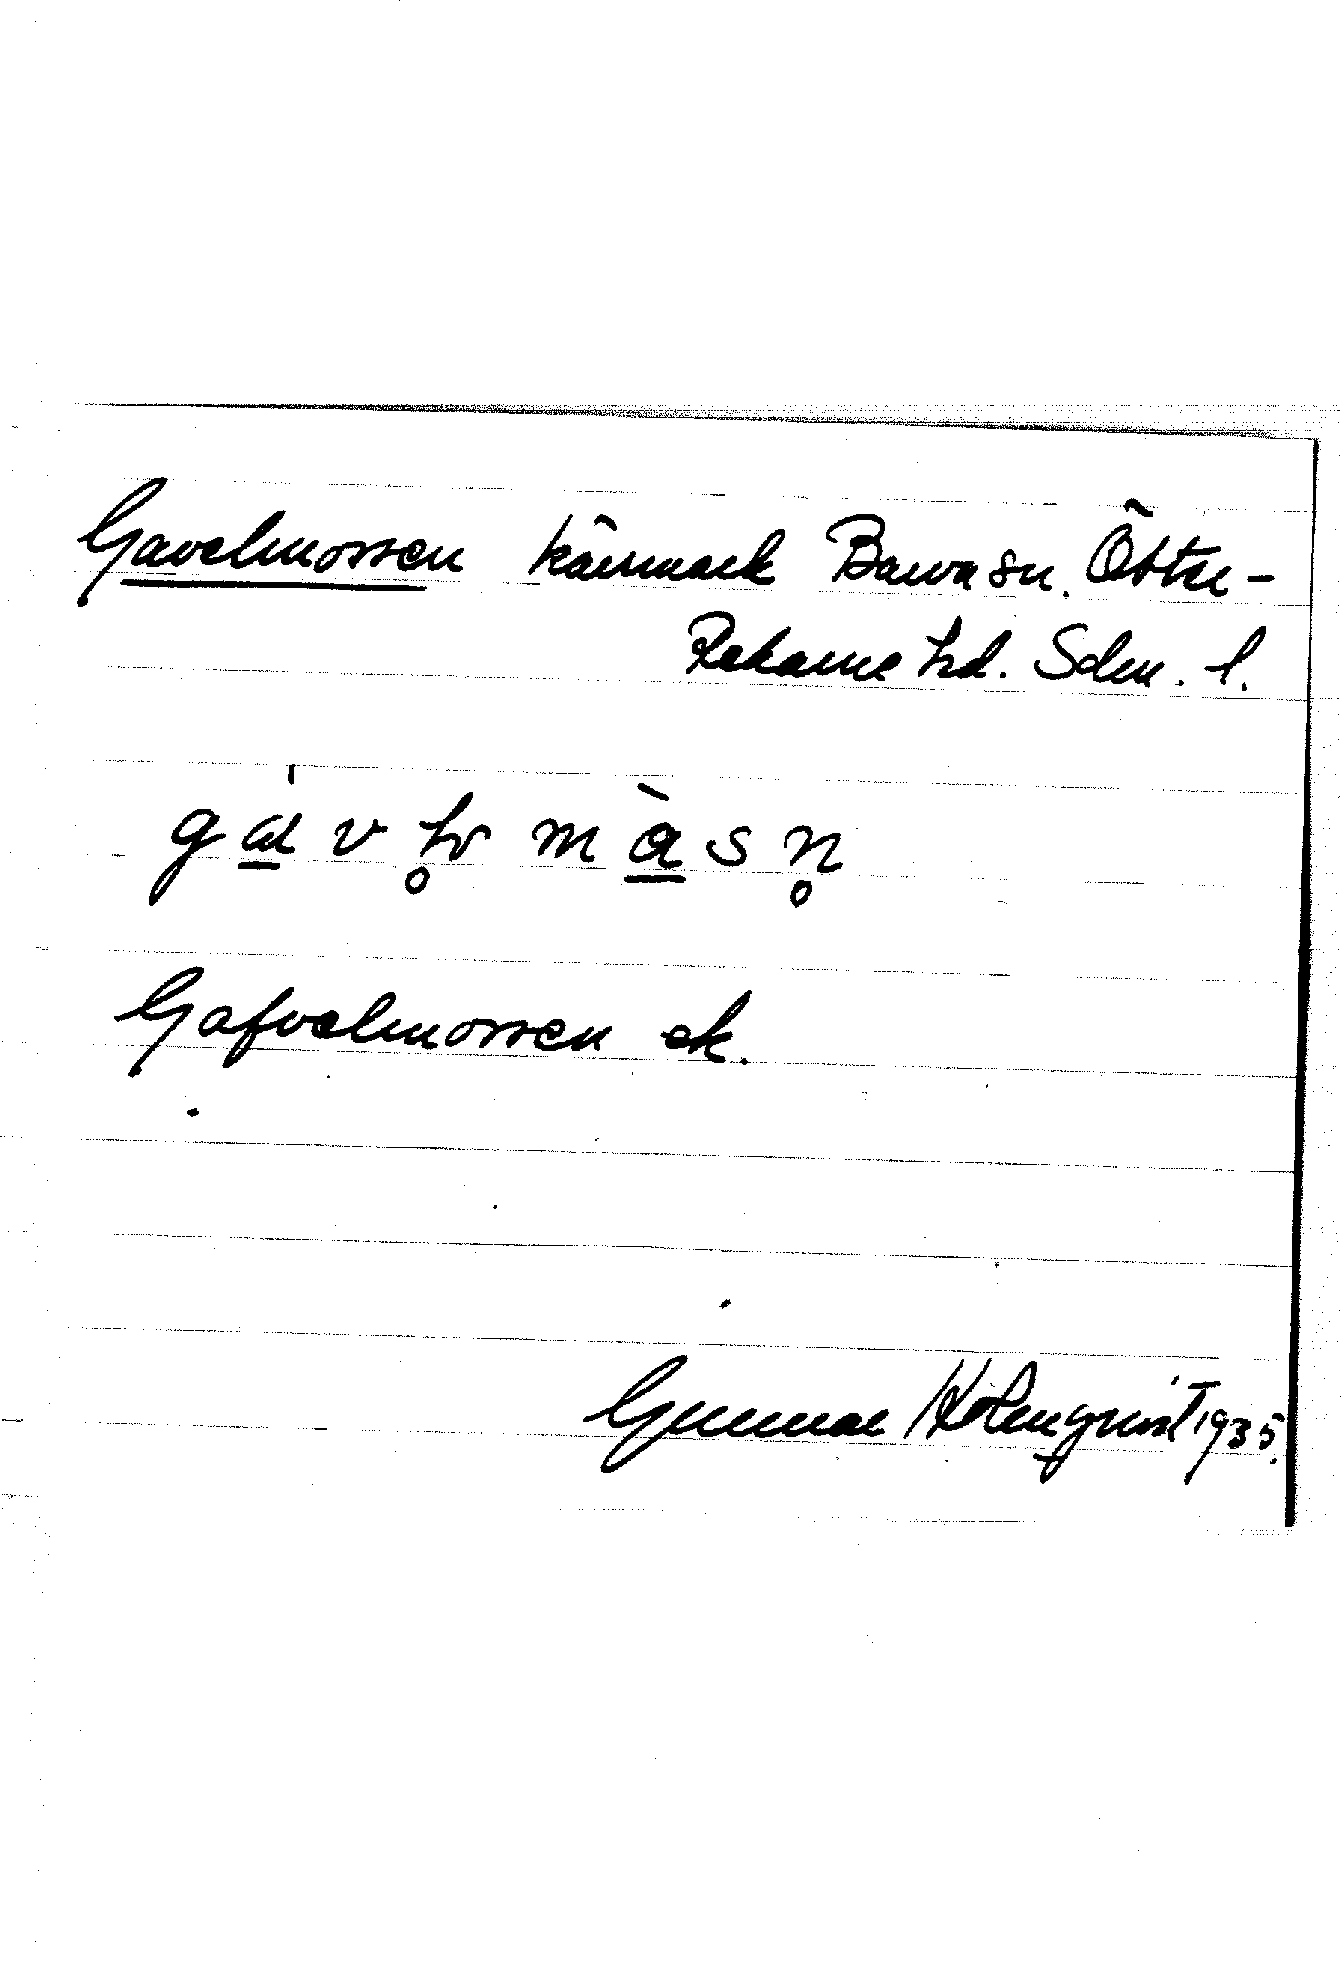 Gavelmossen kärrmark Barva sn. Öster-
Rekarne hd. Sdm. l.
Gafvelmossen ek.
Gunnar Holmqvist 1935.